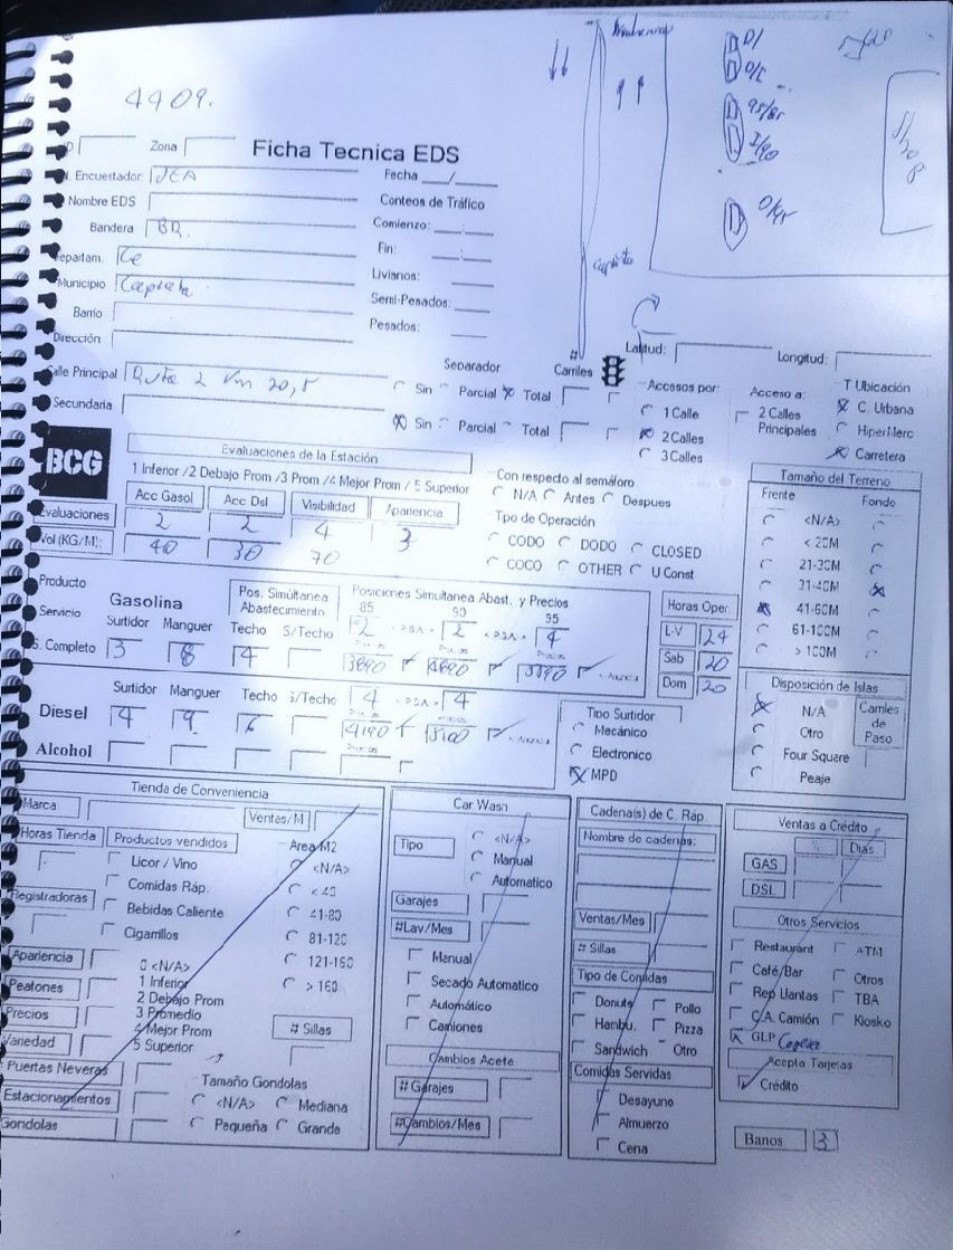 4409.
D/
D/C
95/85
3/90
Shop
ID Zona
Ficha Tecnica EDS
N. Encuestador: JEA
Fecha __/__
Nombre EDS
Conteos de Tráfico
Bandera BR.
Comienzo:
Departam. Ce
Fin:
Municipio Capiata
Livianos:
Barrio
Semi-Pesados:
Dirección
Pesados:
Latitud: Longitud:
Calle Principal Ruta 2 Km 20,5
Separador
# Carriles
Sin Parcial Total
Secundaria
Sin Parcial Total
Accesos por:
1 Calle
2 Calles
3 Calles
Acceso a:
2 Calles
Principales
T Ubicación
C. Urbana
HiperMerc
Carretera
BCG
Evaluaciones de la Estación
1 Inferior /2 Debajo Prom /3 Prom /4 Mejor Prom / 5 Superior
Acc Gasol Acc Dsl Visibilidad Apariencia
Evaluaciones 2 2 4 3
Vol (KG/M): 40 30 70
Con respecto al semáforo
N/A Antes Despues
Tipo de Operación
CODO DODO CLOSED
COCO OTHER U Const
Tamaño del Terreno
Frente Fondo
<N/A>
< 20M
21-30M
31-40M
41-60M
61-100M
> 100M
Producto
Servicio
S. Completo
Gasolina
Surtidor Manguer
3 8
Pos. Simúltanea
Abastecimiento
Techo S/Techo
4
Posiciones Simultanea Abast. y Precios
85 90 95
2 2 4
Horas Oper.
L-V 24
Sab 20
Dom 20
Diesel
Surtidor Manguer Techo S/Techo
4 9 6
4 4
4190 5100
Alcohol
Tipo Surtidor
Mecánico
Electronico
MPD
Disposición de Islas
N/A
Otro
Four Square
Peaje
Carriles
de
Paso
Tienda de Conveniencia
Marca
Ventas/M
Horas Tienda Productos vendidos
Licor / Vino
Comidas Ráp.
Bebidas Caliente
Cigarrillos
Area M2
<N/A>
< 40
41-80
81-120
121-160
> 160
Registradoras
Apariencia
Peatones
Precios
Variedad
Puertas Neveras
Estacionamientos
Gondolas
0 <N/A>
1 Inferior
2 Debajo Prom
3 Promedio
4 Mejor Prom
5 Superior
# Sillas
Tamaño Gondolas
<N/A> Mediana
Pequeña Grande
Car Wash
Tipo
<N/A>
Manual
Automatico
Garajes
#Lav/Mes
Manual
Secado Automatico
Automático
Camiones
Cambios Acete
# Garajes
#Cambios/Mes
Cadena(s) de C. Ráp.
Nombre de cadenas:
Ventas/Mes
# Sillas
Tipo de Comidas
Donuts Pollo
Hambu. Pizza
Sandwich Otro
Comidas Servidas
Desayuno
Almuerzo
Cena
Ventas a Crédito
% Dias
GAS
DSL
Otros Servicios
Restaurant ATM
Café/Bar Otros
Rep Llantas TBA
C.A. Camión Kiosko
GLP
Acepta Tarjetas
Crédito
Banos 3